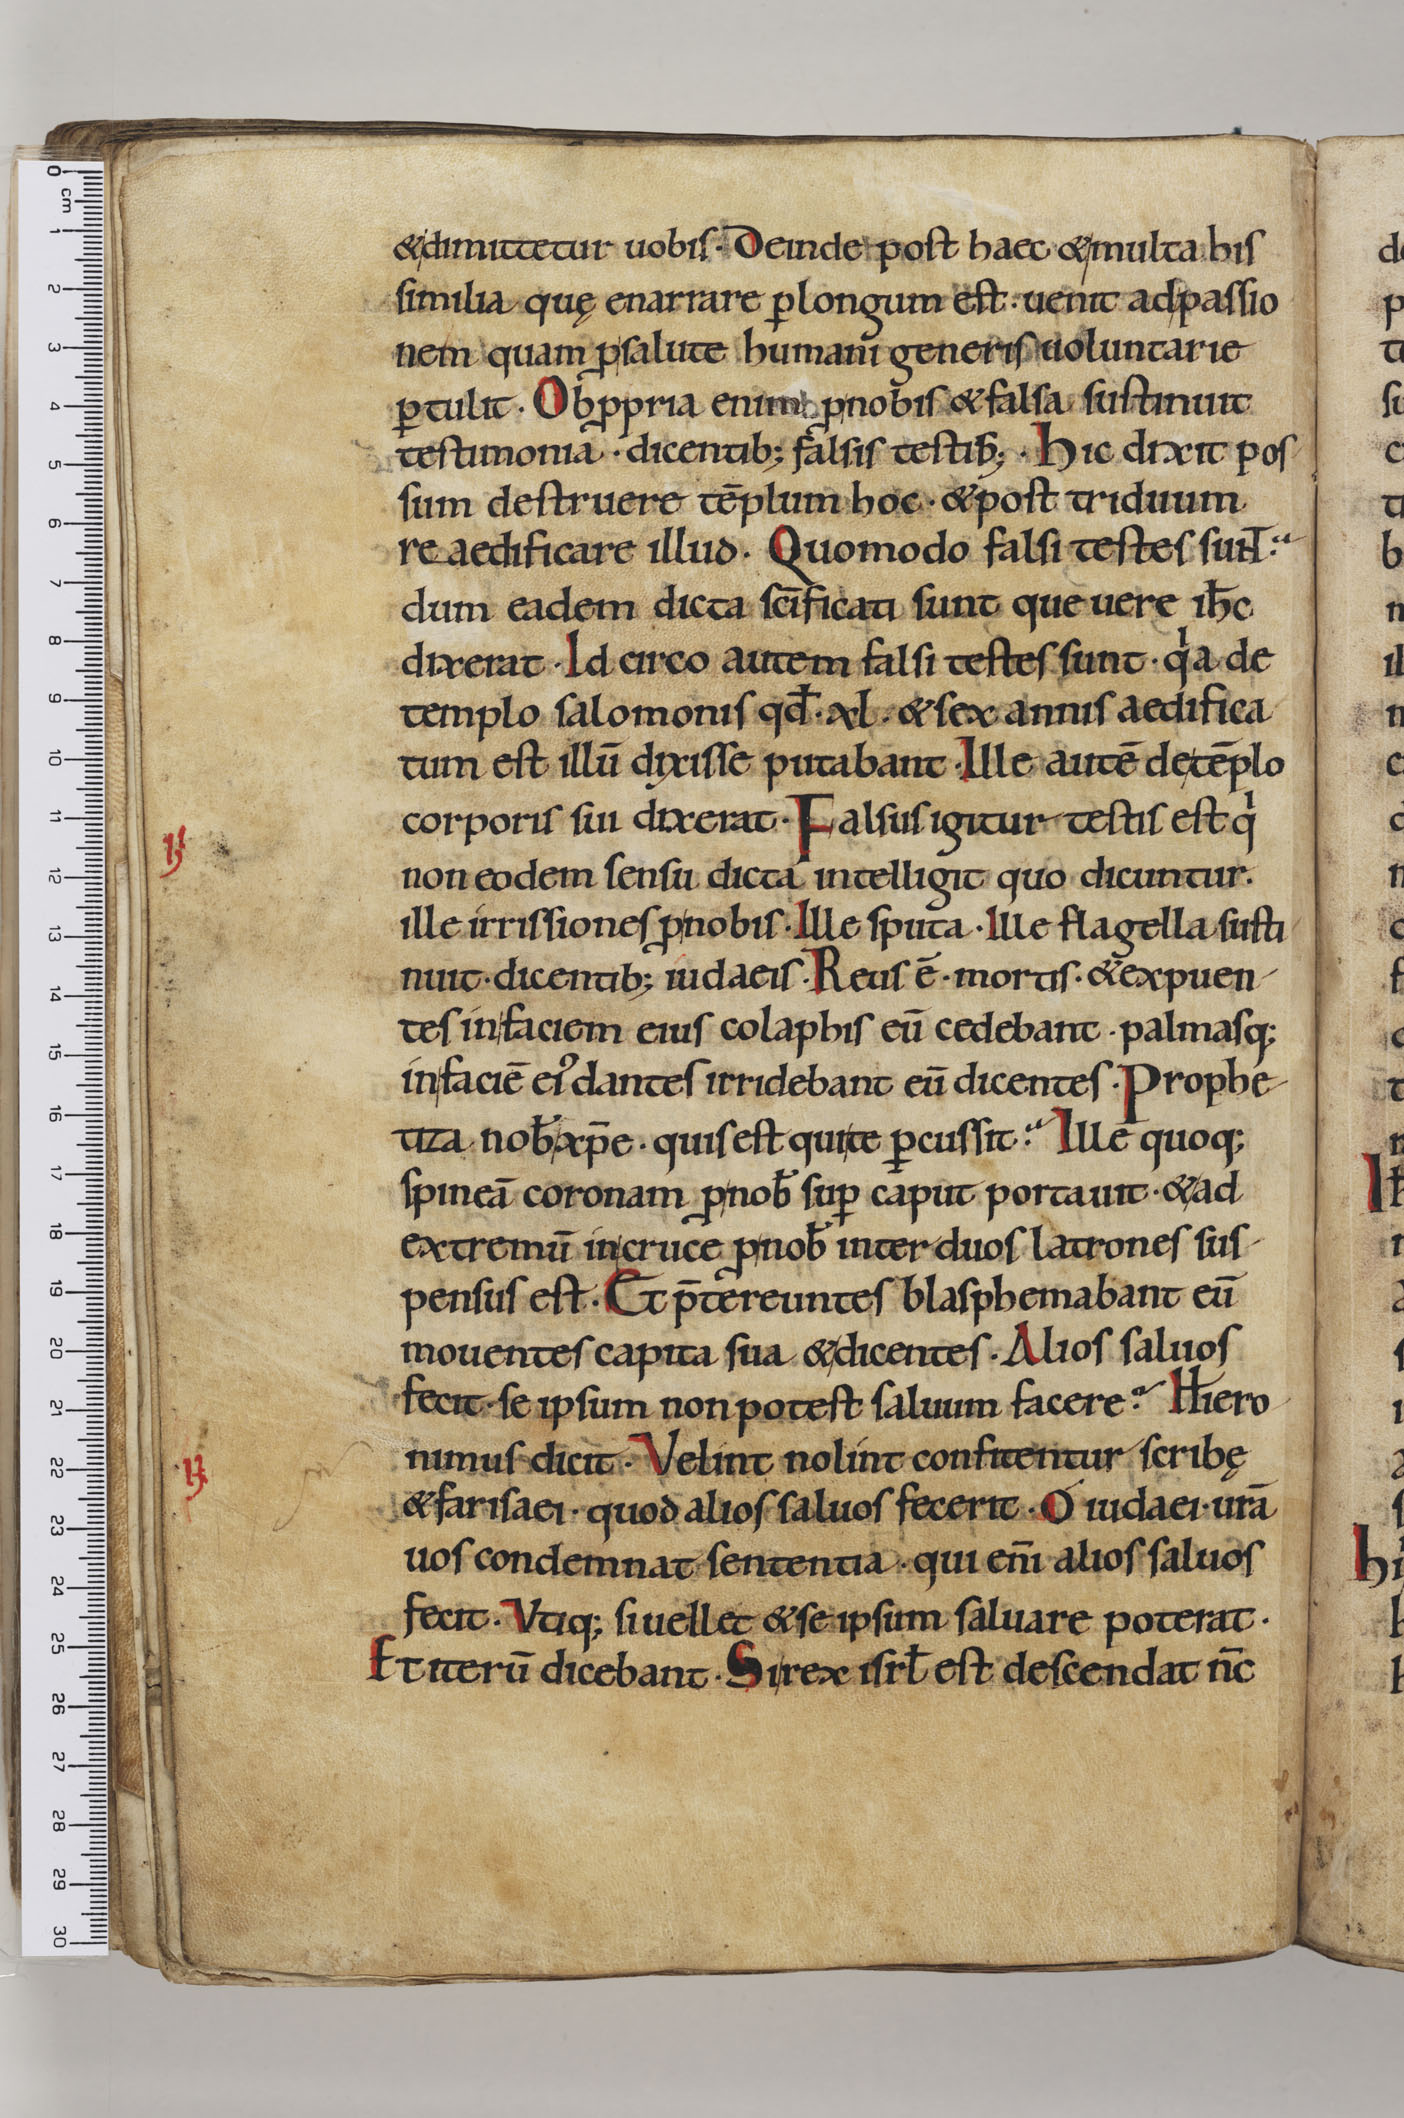 &dimittetur uobis. Deinde post haec &multa his
similia quę enarrare ꝑlongum est. uenit adpassio
nem quam ꝓsalute humani generis uoluntarie
ꝑtulit. Obꝓpria enim ꝓnobis &falsa sustinuit
testimonia. dicentib; falsis testib;. Hic dixit pos
sum destruere tēplum hoc. &post triduum
re aedificare illud. Quomodo falsi testes sunt.
dum eadem dicta sc̄ificati sunt que uere ih̄c
dixerat. Id circo autem falsi testes sunt. qͥa de
templo salomonis qd̄. xl. &sex annis aedifica
tum est illū dixisse putabant. Ille autē detēplo
corporis sui dixerat. Falsus igitur testis est qͥ
non eodem sensu dicta intelligit quo dicuntur.
ille irrissiones ꝓnobis. Ille sputa. Ille flagella susti
nuit. dicentib; iudaeis. Reus ē. mortis. &expuen
tes infaciem eius colaphis eū cedebant. palmasq;
infaciē eiꝰ dantes irridebant eū dicentes. Prophe
tiza nob̄ xp̄e. quis est quite ꝑcussit. Ille quoq;
spineā coronam ꝓnob̄ suꝑ caput portauit. &ad
extremū incruce ꝓnob̄ inter duos latrones sus
pensus est. Et p̄tereuntes blasphemabant eū
mouentes capita sua &dicentes. Alios saluos
fecit. se ipsum non potest saluum facere. Hiero
nimus dicit. Velint nolint confitentur scribę
&farisaei. quod alios saluos fecerit. O iudaei. ur̄a
uos condemnat sententia. qui en̄i alios saluos
fecit. Vtiq; si uellet &se ipsum saluare poterat.
Et iterū dicebant. Si rex isrl̄ est descendat nc̄